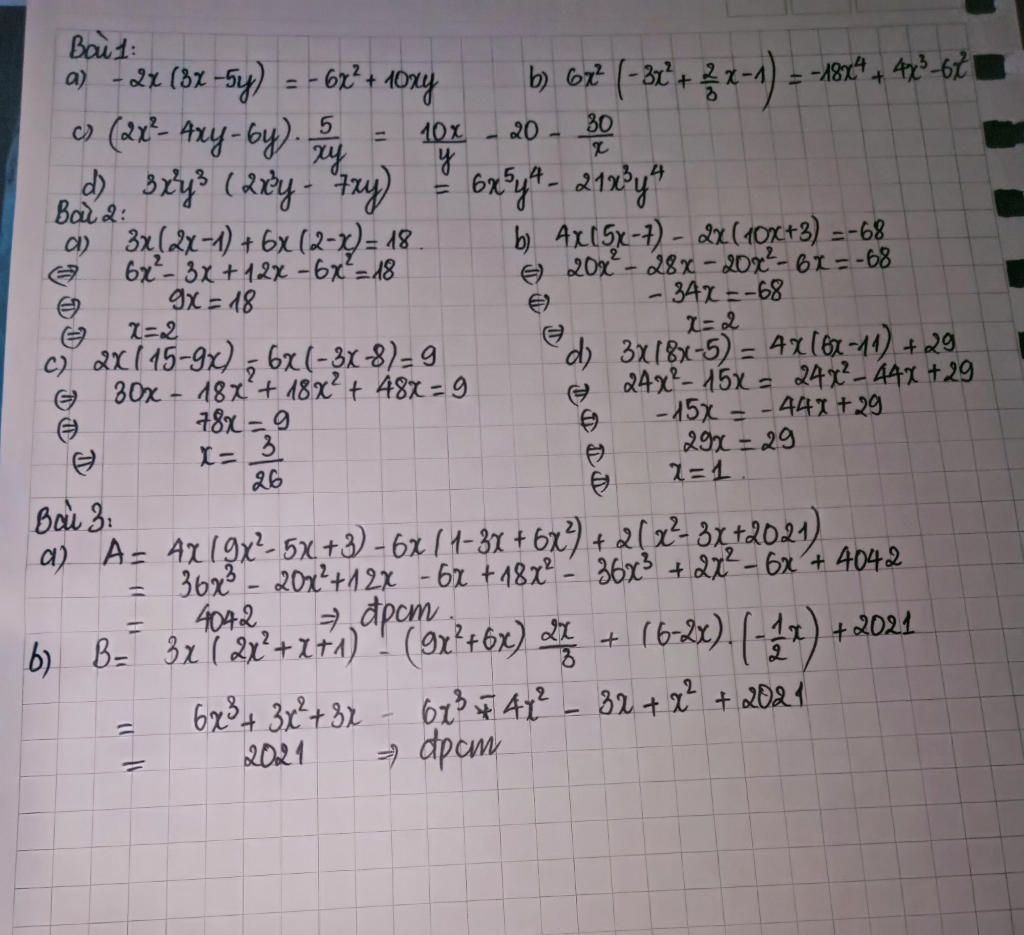 Bài 1:
a) -2x (3x - 5y) = -6x² + 10xy b) 6x² (-3x² + 2/3 x - 1) = -18x⁴ + 4x³ - 6x²
c) (2x² - 4xy - 6y) . 5/xy = 10x/y - 20 - 30/x
d) 3x²y³ (2x³y - 7xy) = 6x⁵y⁴ - 21x³y⁴
Bài 2:
a) 3x(2x-1) + 6x(2-x) = 18. b) 4x(5x-7) - 2x(10x+3) = -68
⇔ 6x² - 3x + 12x - 6x² = 18 ⇔ 20x² - 28x - 20x² - 6x = -68
⇔ 9x = 18 ⇔ -34x = -68
⇔ x = 2 ⇔ x = 2
c) 2x(15-9x) - 6x(-3x-8) = 9 d) 3x(8x-5) = 4x(6x-11) + 29
⇔ 30x - 18x² + 18x² + 48x = 9 ⇔ 24x² - 15x = 24x² - 44x + 29
⇔ 78x = 9 ⇔ -15x = -44x + 29
⇔ x = 3/26 ⇔ 29x = 29
⇔ x = 1.
Bài 3:
a) A = 4x(9x² - 5x + 3) - 6x(1 - 3x + 6x²) + 2(x² - 3x + 2021)
= 36x³ - 20x² + 12x - 6x + 18x² - 36x³ + 2x² - 6x + 4042
= 4042 ⇒ đpcm.
b) B = 3x(2x² + x + 1) - (9x² + 6x) 2x/3 + (6-2x) . (-1/2 x) + 2021
= 6x³ + 3x² + 3x - 6x³ - 4x² - 3x + x² + 2021
= 2021 ⇒ đpcm